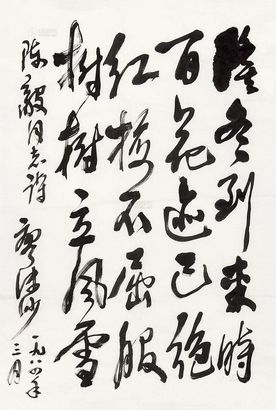 隆冬到来时
百花迹已绝
红梅不屈服
树树立风雪
陈毅同志诗
一九八六年
三月